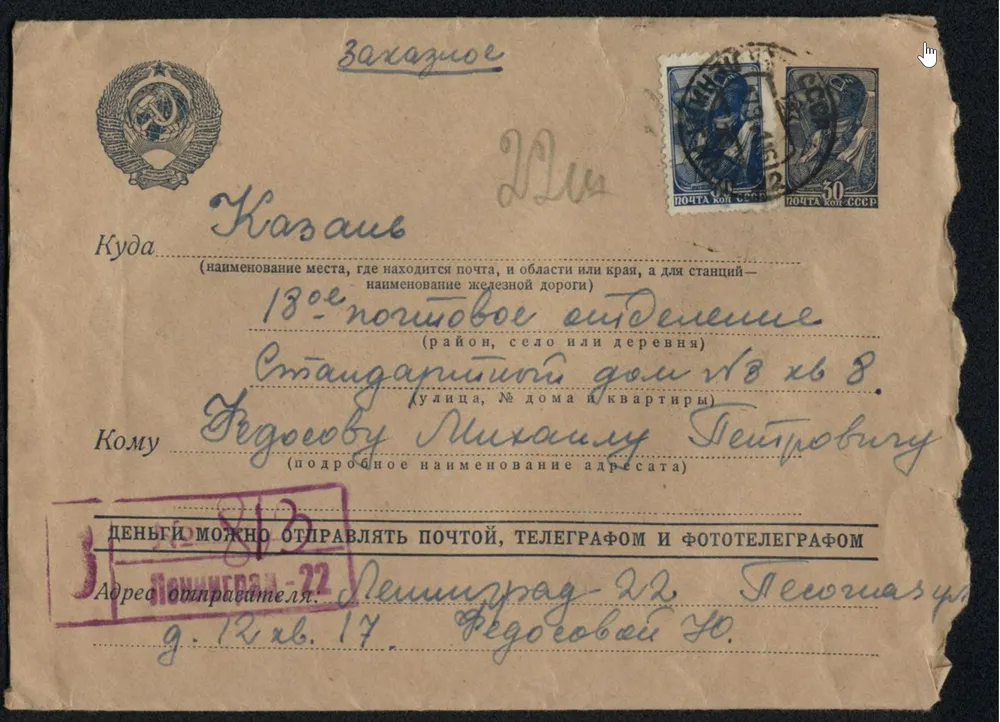 Заказное
22
Казань
Куда
(наименование места, где находится почта, и области или края, а для станций—
наименование железной дороги)
ПОЧТА коп СССР
30
ПОЧТА коп СССР
13ое почтовое отделение
(район, село или деревня)
Стандартный дом №3 кв 8.
(улица, № дома и квартиры)
Кому Федосову Михаилу Петровичу
(подробное наименование адресата)
З
№ 813
ДЕНЬГИ МОЖНО ОТПРАВЛЯТЬ ПОЧТОЙ, ТЕЛЕГРАФОМ И ФОТОТЕЛЕГРАФОМ
Ленинград-22
Адрес отправителя: Ленинград 22 Песочная ул
д. 12 кв. 17 Федосовой Ю.